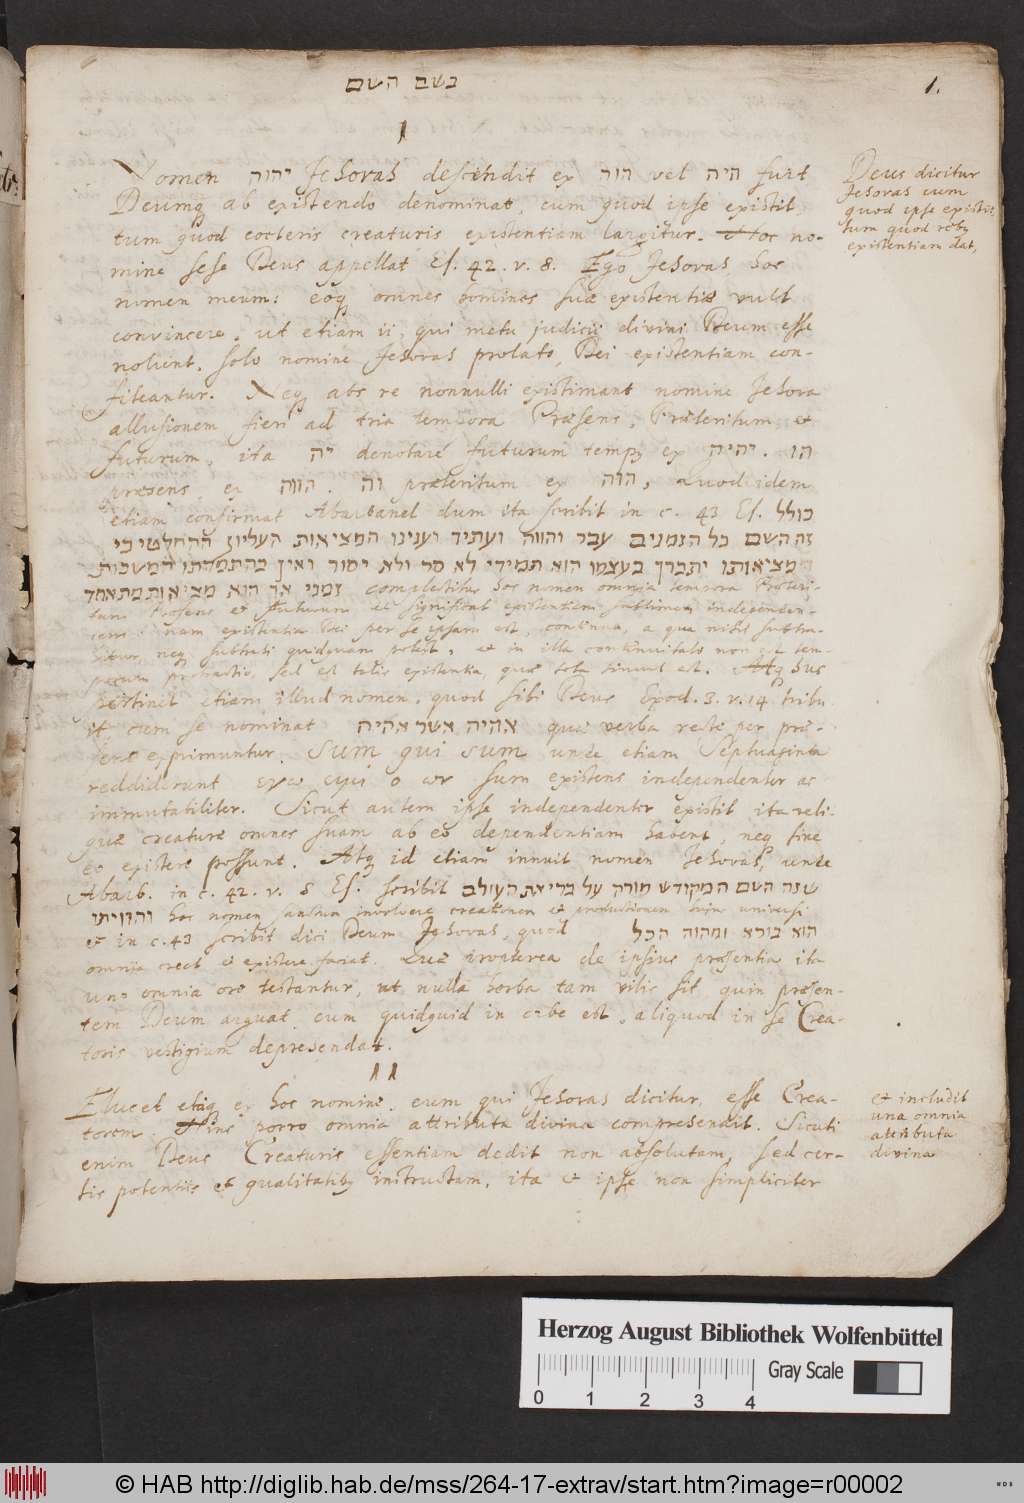 בשם השם
1.
I
Nomen יהוה Jehovah descendit ex הוה vel היה fuit
Deumq ab existendo denominat, cum quod ipse existit
tum quod coeteris creaturis existentiam largitur. Hoc no-
mine sese Deus appellat Es. 42. v. 8. Ego Jehovah, hoc
nomen meum: eoq omnes homines suae existentiae vult
convincere, ut etiam ii, qui metu judicii divini Deum esse
nolunt, solo nomine Jehovah prolato, Dei existentiam con-
fiteantur. Neq abs re nonnulli existimant nomine Jehova
allusionem fieri ad tria tempora Praesens, Praeteritum et
futurum, ita יה denotare futurum temp ex יהיה. הו
praesens, ex הווה. וה praeteritum ex הוה, Quod idem
etiam confirmat Abarbanel dum ita scribit in c. 43 Es. כולל
זה השם כל הזמנים עבר והווה ועתיד וענינו המציאות העליון ההחלטי כי
מציאותו יתברך בעצמו הוא תמידי לא סר ולא יסור ואין בהתמדתו המשכות
זמני אך הוא מציאות מתאחד complectitur hoc nomen omnia tempora Praeteri-
tum Praesens et Futurum et significat existentiam sublimem independen-
tem: nam existentia Dei per se ipsam est, continua, a qua nihil subtra-
hitur, neq subtrahi quidquam potest, et in illa continuitate non est tem-
porum protractio, sed est talis existentia, quae tota simul est. Atq huc
pertinet etiam illud nomen, quod sibi Deus Exod. 3. v. 14 tribu
it, cum se nominat אהיה אשר אהיה quae verba recte per prae-
sens exprimuntur. Sum qui sum unde etiam Septuaginta
reddiderunt εγω ειμι ο ων sum existens independenter ac
immutabiliter. Sicut autem ipse independenter existit ita reli-
quae creaturae omnes suam ab eo dependentiam habent, neq sine
eo existere possunt. Atq id etiam innuit nomen Jehovah, unde
Abarb. in c. 42. v. 8 Es. scribit שזה השם המקודש מורה על בריאת העולם
והוויתו hoc nomen sanctum involvere creationem et productionem hujus universi
et in c. 43 scribit dici Deum Jehovah, quod הוא בורא ומהוה הכל
omnia creet et existere faciat. Quae propterea de ipsius praesentia ita
uno omnia ore testantur, ut nulla herba tam vilis sit, quin praesen-
tem Deum arguat, cum quidquid in orbe est, aliquod in se Crea-
toris vestigium deprehendat.
II
Elucet etiaq ex hoc nomine, eum qui Jehovah dicitur, esse Crea-
torem. Hinc porro omnia attributa divina comprehendit. Sicuti
enim Deus Creaturis essentiam dedit non absolutam, sed cer-
tis potentiis et qualitatib instructam, ita et ipse non simpliciter
Deus dicitur
Jehovah cum
quod ipse existit,
tum quod reb
existentiam dat,
et includit
una omnia
attributa
divina
Herzog August Bibliothek Wolfenbüttel
0 1 2 3 4
Gray Scale
© HAB http://diglib.hab.de/mss/264-17-extrav/start.htm?image=r00002